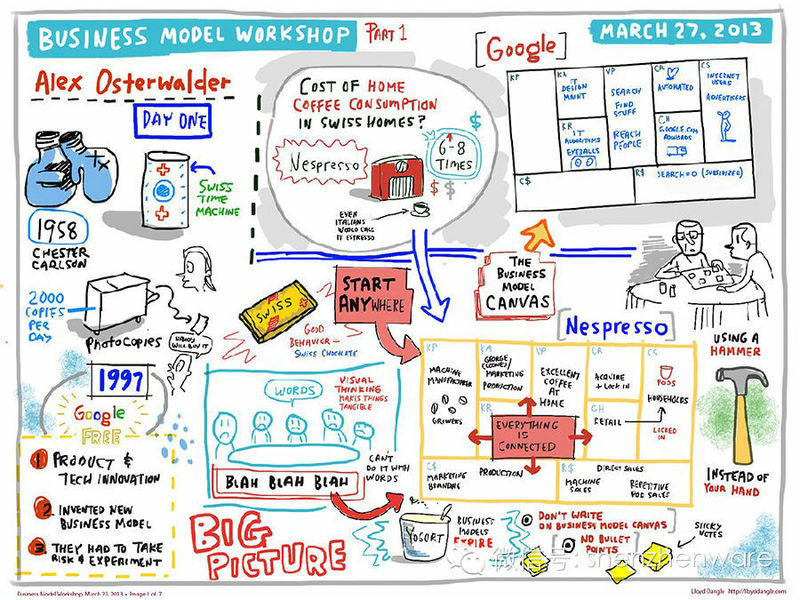 BUSINESS MODEL WORKSHOP
PART 1
MARCH 27, 2013
Alex Osterwalder
DAY ONE
SWISS
TIME
MACHINE
1958
CHESTER
CARLSON
2000
COPIES
PER
DAY
PHOTOCOPIES
NOBODY
WILL BUY IT
1997
Google
FREE
1 PRODUCT &
TECH INNOVATION
2. INVENTED NEW
BUSINESS MODEL
3. THEY HAD TO TAKE
RISK & EXPERIMENT
COST OF HOME
COFFEE CONSUMPTION
IN SWISS HOMES?
Nespresso
6-8
TIMES
$
$ $
EVEN
ITALIANS
WOULD CALL
IT ESPRESSO
[Google]
KP
KA
IT
DESIGN
MGNT
VP
SEARCH
FIND
STUFF
REACH
PEOPLE
AUTOMATED
CS
INTERNET
USERS
ADVERTISERS
KR
IT
ALGORITHMS
EYEBALLS
CH
GOOGLE.COM
ADWORDS
C$
R$
SEARCH=0 (SUBSIDIZED)
START
ANYWHERE
THE
BUSINESS
MODEL
CANVAS
SWISS
GOOD
BEHAVIOR =
SWISS CHOCOLATE
WORDS
VISUAL
THINKING
MAKES THINGS
TANGIBLE
CAN'T
DO IT WITH
WORDS
BLAH BLAH BLAH
BIG
PICTURE
[Nespresso]
KP
MACHINE
MANUFACTURER
GROWERS
KA
GEORGE
(CLOONEY)
MARKETING
PRODUCTION
VP
EXCELLENT
COFFEE
AT
HOME
CR
ACQUIRE
+ LOCK IN
CS
PODS
HOUSEHOLDS
LOCKED IN
KR
CH
RETAIL
EVERYTHING
IS
CONNECTED
C$
MARKETING
BRANDING
PRODUCTION
R$
DIRECT SALES
MACHINE
SALES
REPETITIVE
POD SALES
USING A
HAMMER
INSTEAD OF
YOUR HAND
YOGURT
BUSINESS
MODELS
EXPIRE
DON'T WRITE
ON BUSINESS MODEL CANVAS
NO BULLET
POINTS
STICKY
NOTES
微信号: shenzhenware
Business Model Workshop March 27, 2013 • Image 1 of 7
Lloyd Dangle http://lloyddangle.com